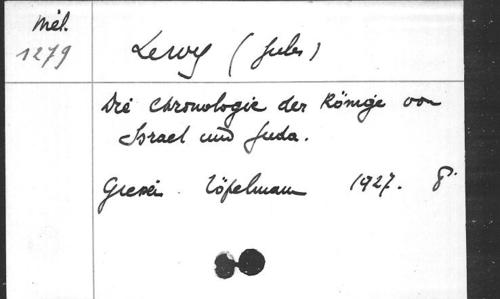 Mél.
1279
Lewy (Jules)
Die Chronologie der Könige von
Israel und Juda.
Giessen Töpelmann 1927. 8°